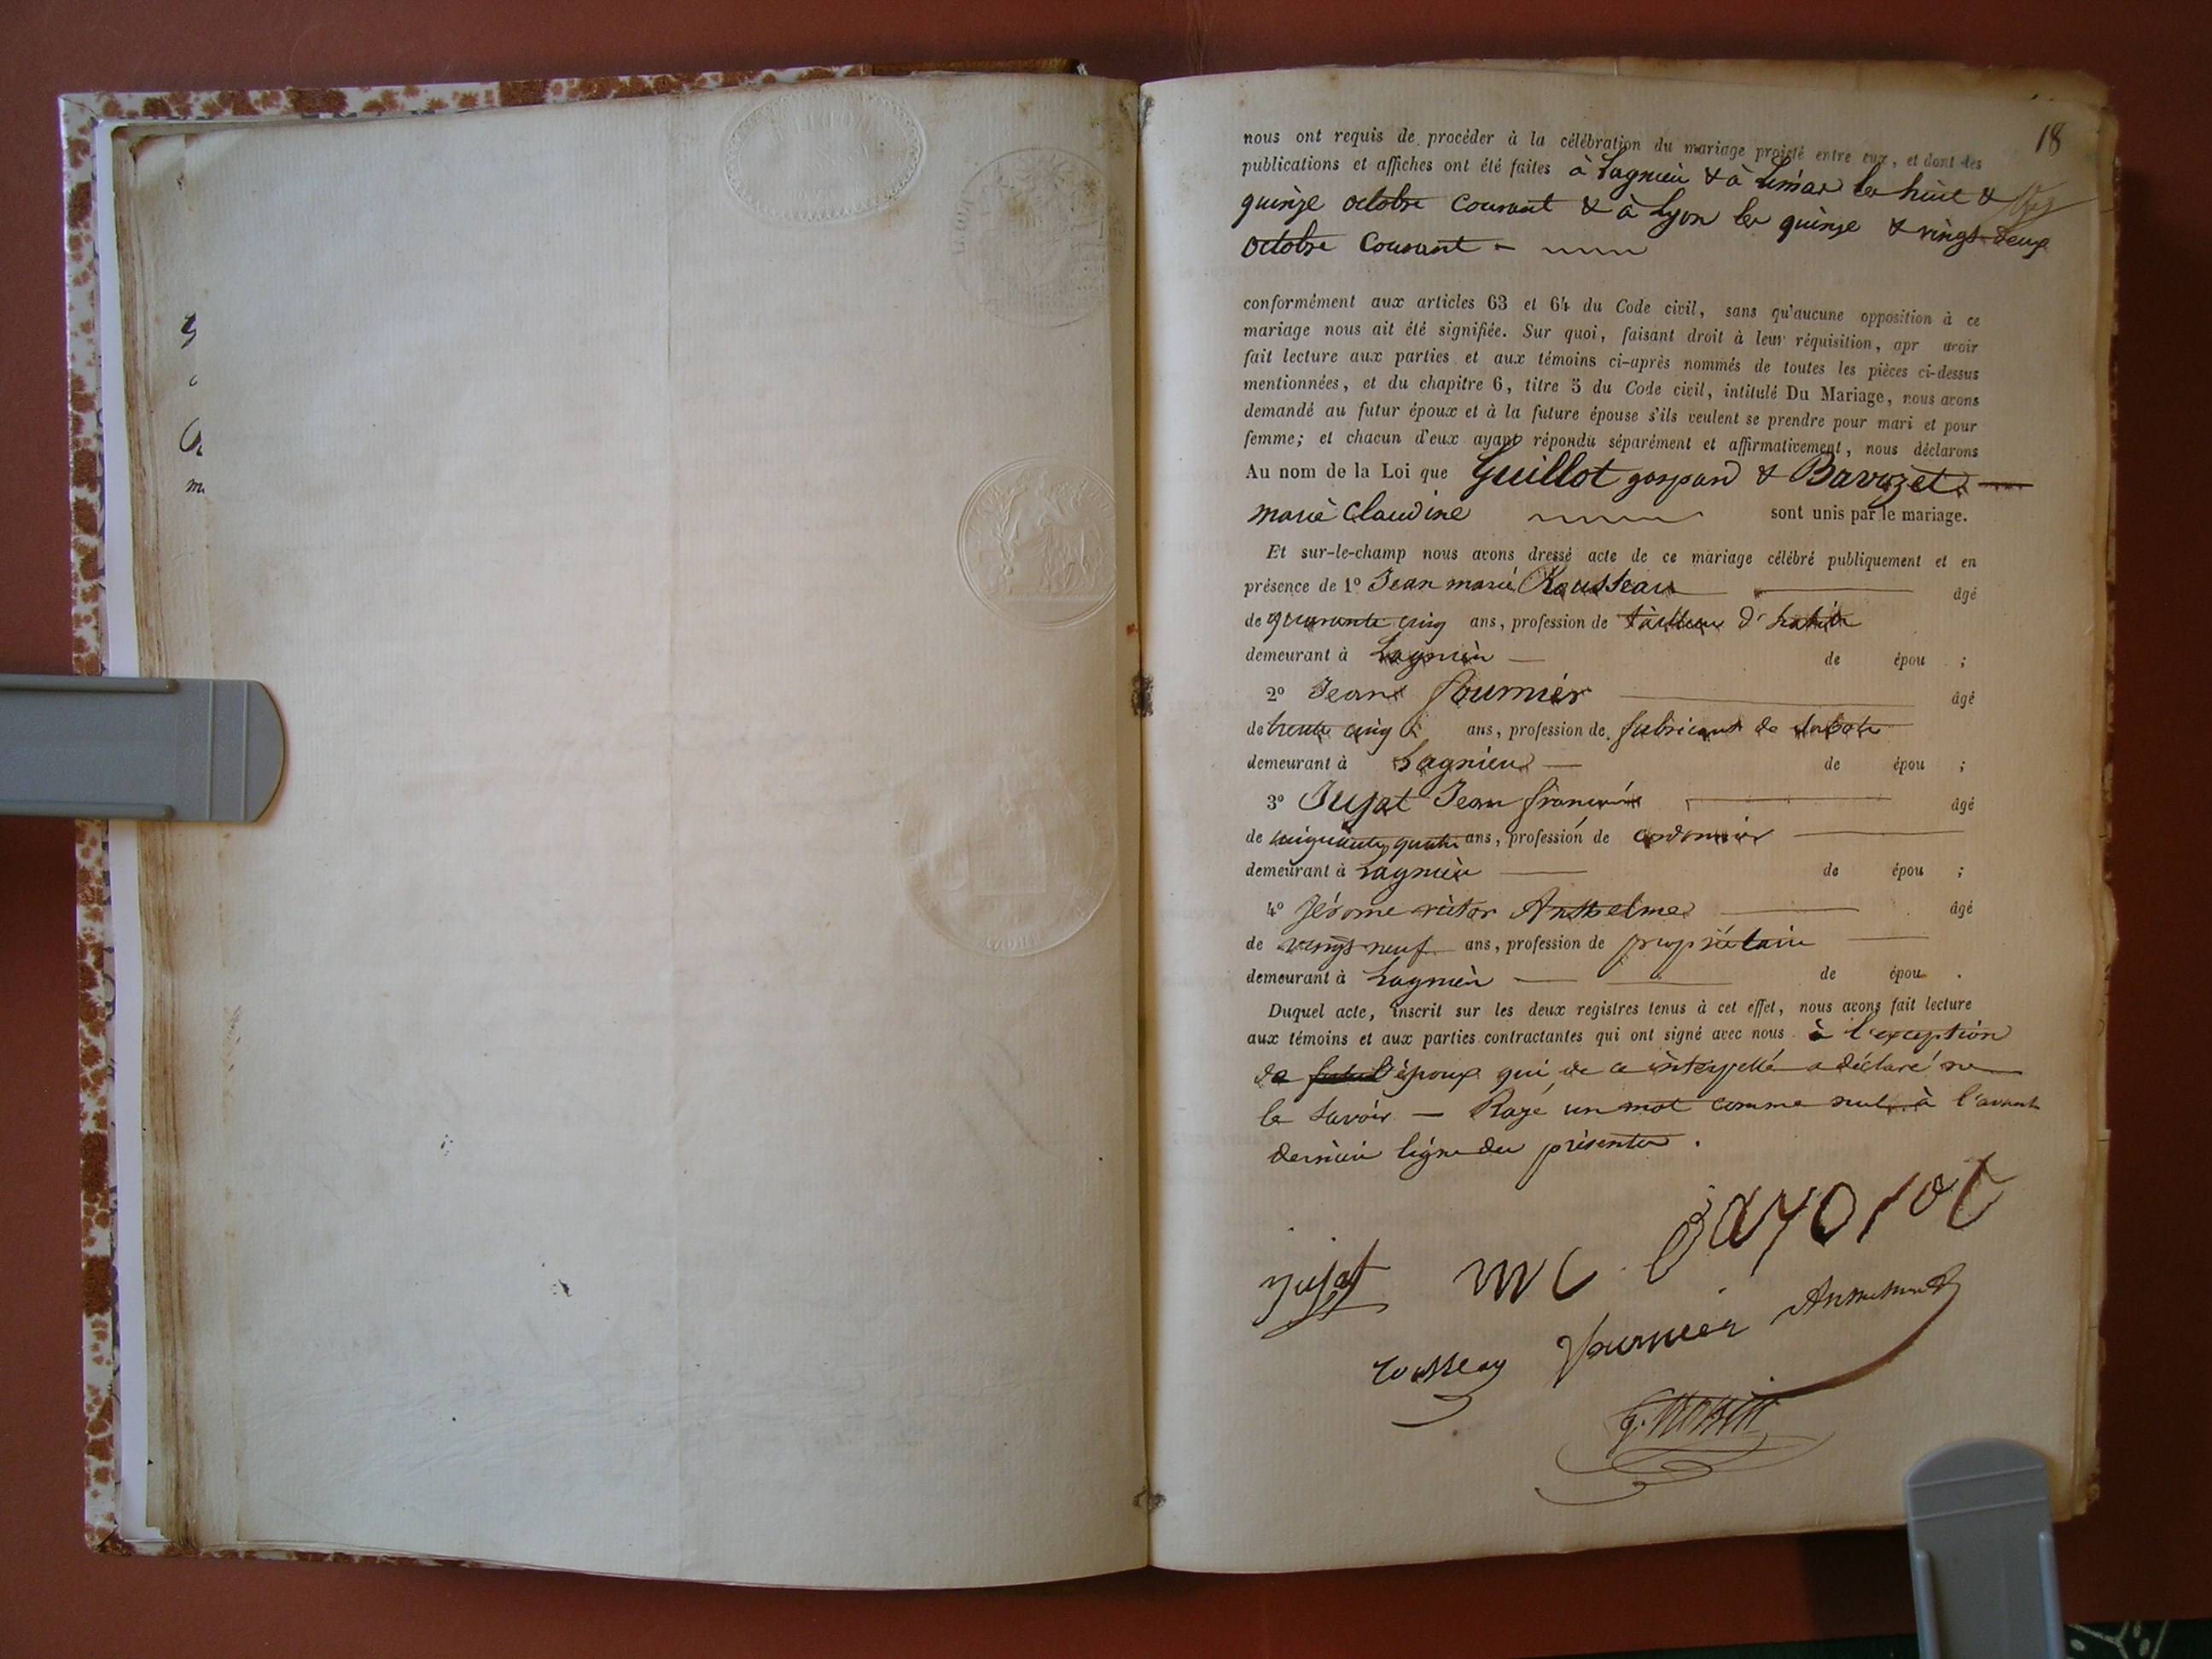 18
nous ont requis de procéder à la célébration du mariage projeté entre eux, et dont les
publications et affiches ont été faites à Lagnieu & à Leimas les huit &
quinze octobre courant & à Lyon les quinze & vingt deux
octobre courant -
conformément aux articles 63 et 64 du Code civil, sans qu'aucune opposition à ce
mariage nous ait été signifiée. Sur quoi, faisant droit à leur réquisition, apr avoir
fait lecture aux parties et aux témoins ci-après nommés de toutes les pièces ci-dessus
mentionnées, et du chapitre 6, titre 5 du Code civil, intitulé Du Mariage, nous avons
demandé au futur époux et à la future épouse s'ils veulent se prendre pour mari et pour
femme; et chacun d'eux ayant répondu séparément et affirmativement, nous déclarons
Au nom de la Loi que Guillot gaspard & Bavozet
marie Claudine sont unis par le mariage.
Et sur-le-champ nous avons dressé acte de ce mariage célébré publiquement et en
présence de 1º Jean marie Rousseau âgé
de quarante cinq ans, profession de tailleur d'habits
demeurant à Lagnieu — de épou ;
2º Jean fournier âgé
de trente cinq ans, profession de fabricant de sabots
demeurant à Lagnieu — de épou ;
3º Jujat Jean françois âgé
de cinquante quatre ans, profession de cordonnier
demeurant à Lagnieu — de épou ;
4º Jérome victor Anthelme âgé
de vingt neuf ans, profession de propriétaire
demeurant à Lagnieu — de épou .
Duquel acte, inscrit sur les deux registres tenus à cet effet, nous avons fait lecture
aux témoins et aux parties contractantes qui ont signé avec nous à l'exception
de l'époux qui de ce interpellé a déclaré ne
le savoir — Rayé un mot comme nul à l'avant
dernière ligne du présente .
jujat MC bavozet
rousseau fournier